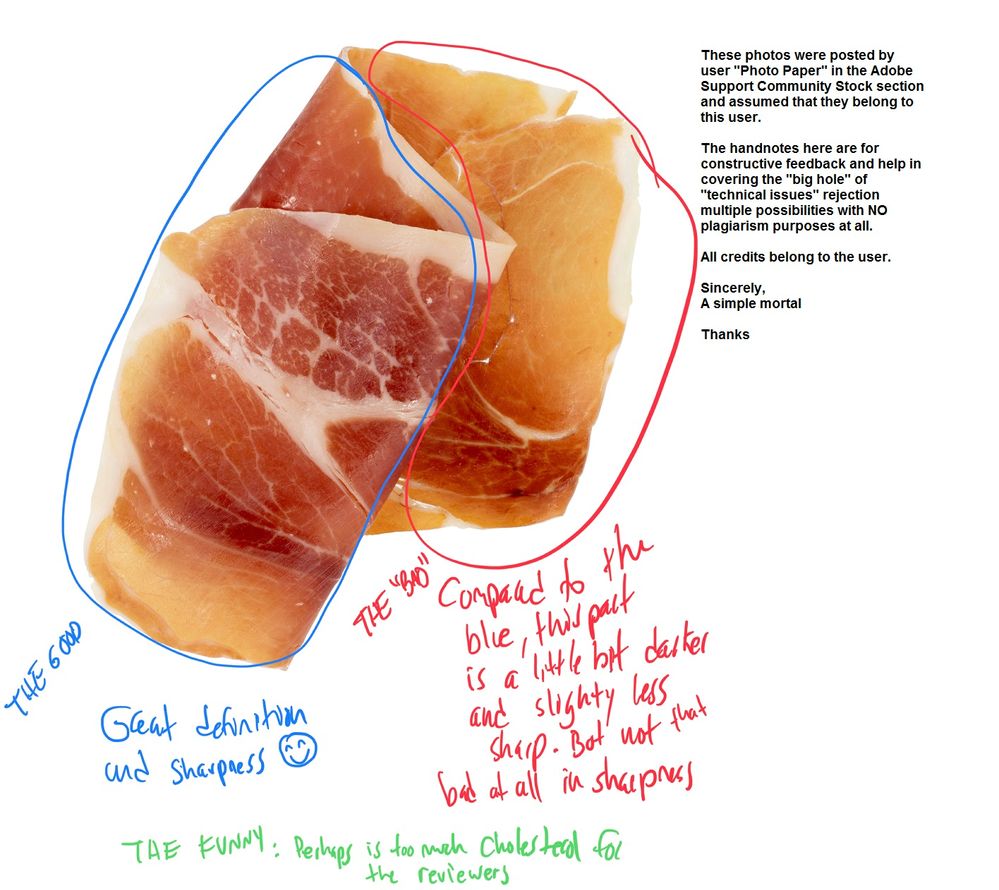 These photos were posted by
user "Photo Paper" in the Adobe
Support Community Stock section
and assumed that they belong to
this user.
The handnotes here are for
constructive feedback and help in
covering the "big hole" of
"technical issues" rejection
multiple possibilities with NO
plagiarism purposes at all.
All credits belong to the user.
Sincerely,
A simple mortal
Thanks
THE GOOD
Great definition
and sharpness
THE "BAD"
Compared to the
blue, this part
is a little bit darker
and slighty less
sharp. But not that
bad at all in sharpness
THE FUNNY: Perhaps is too much cholesterol for
the reviewers